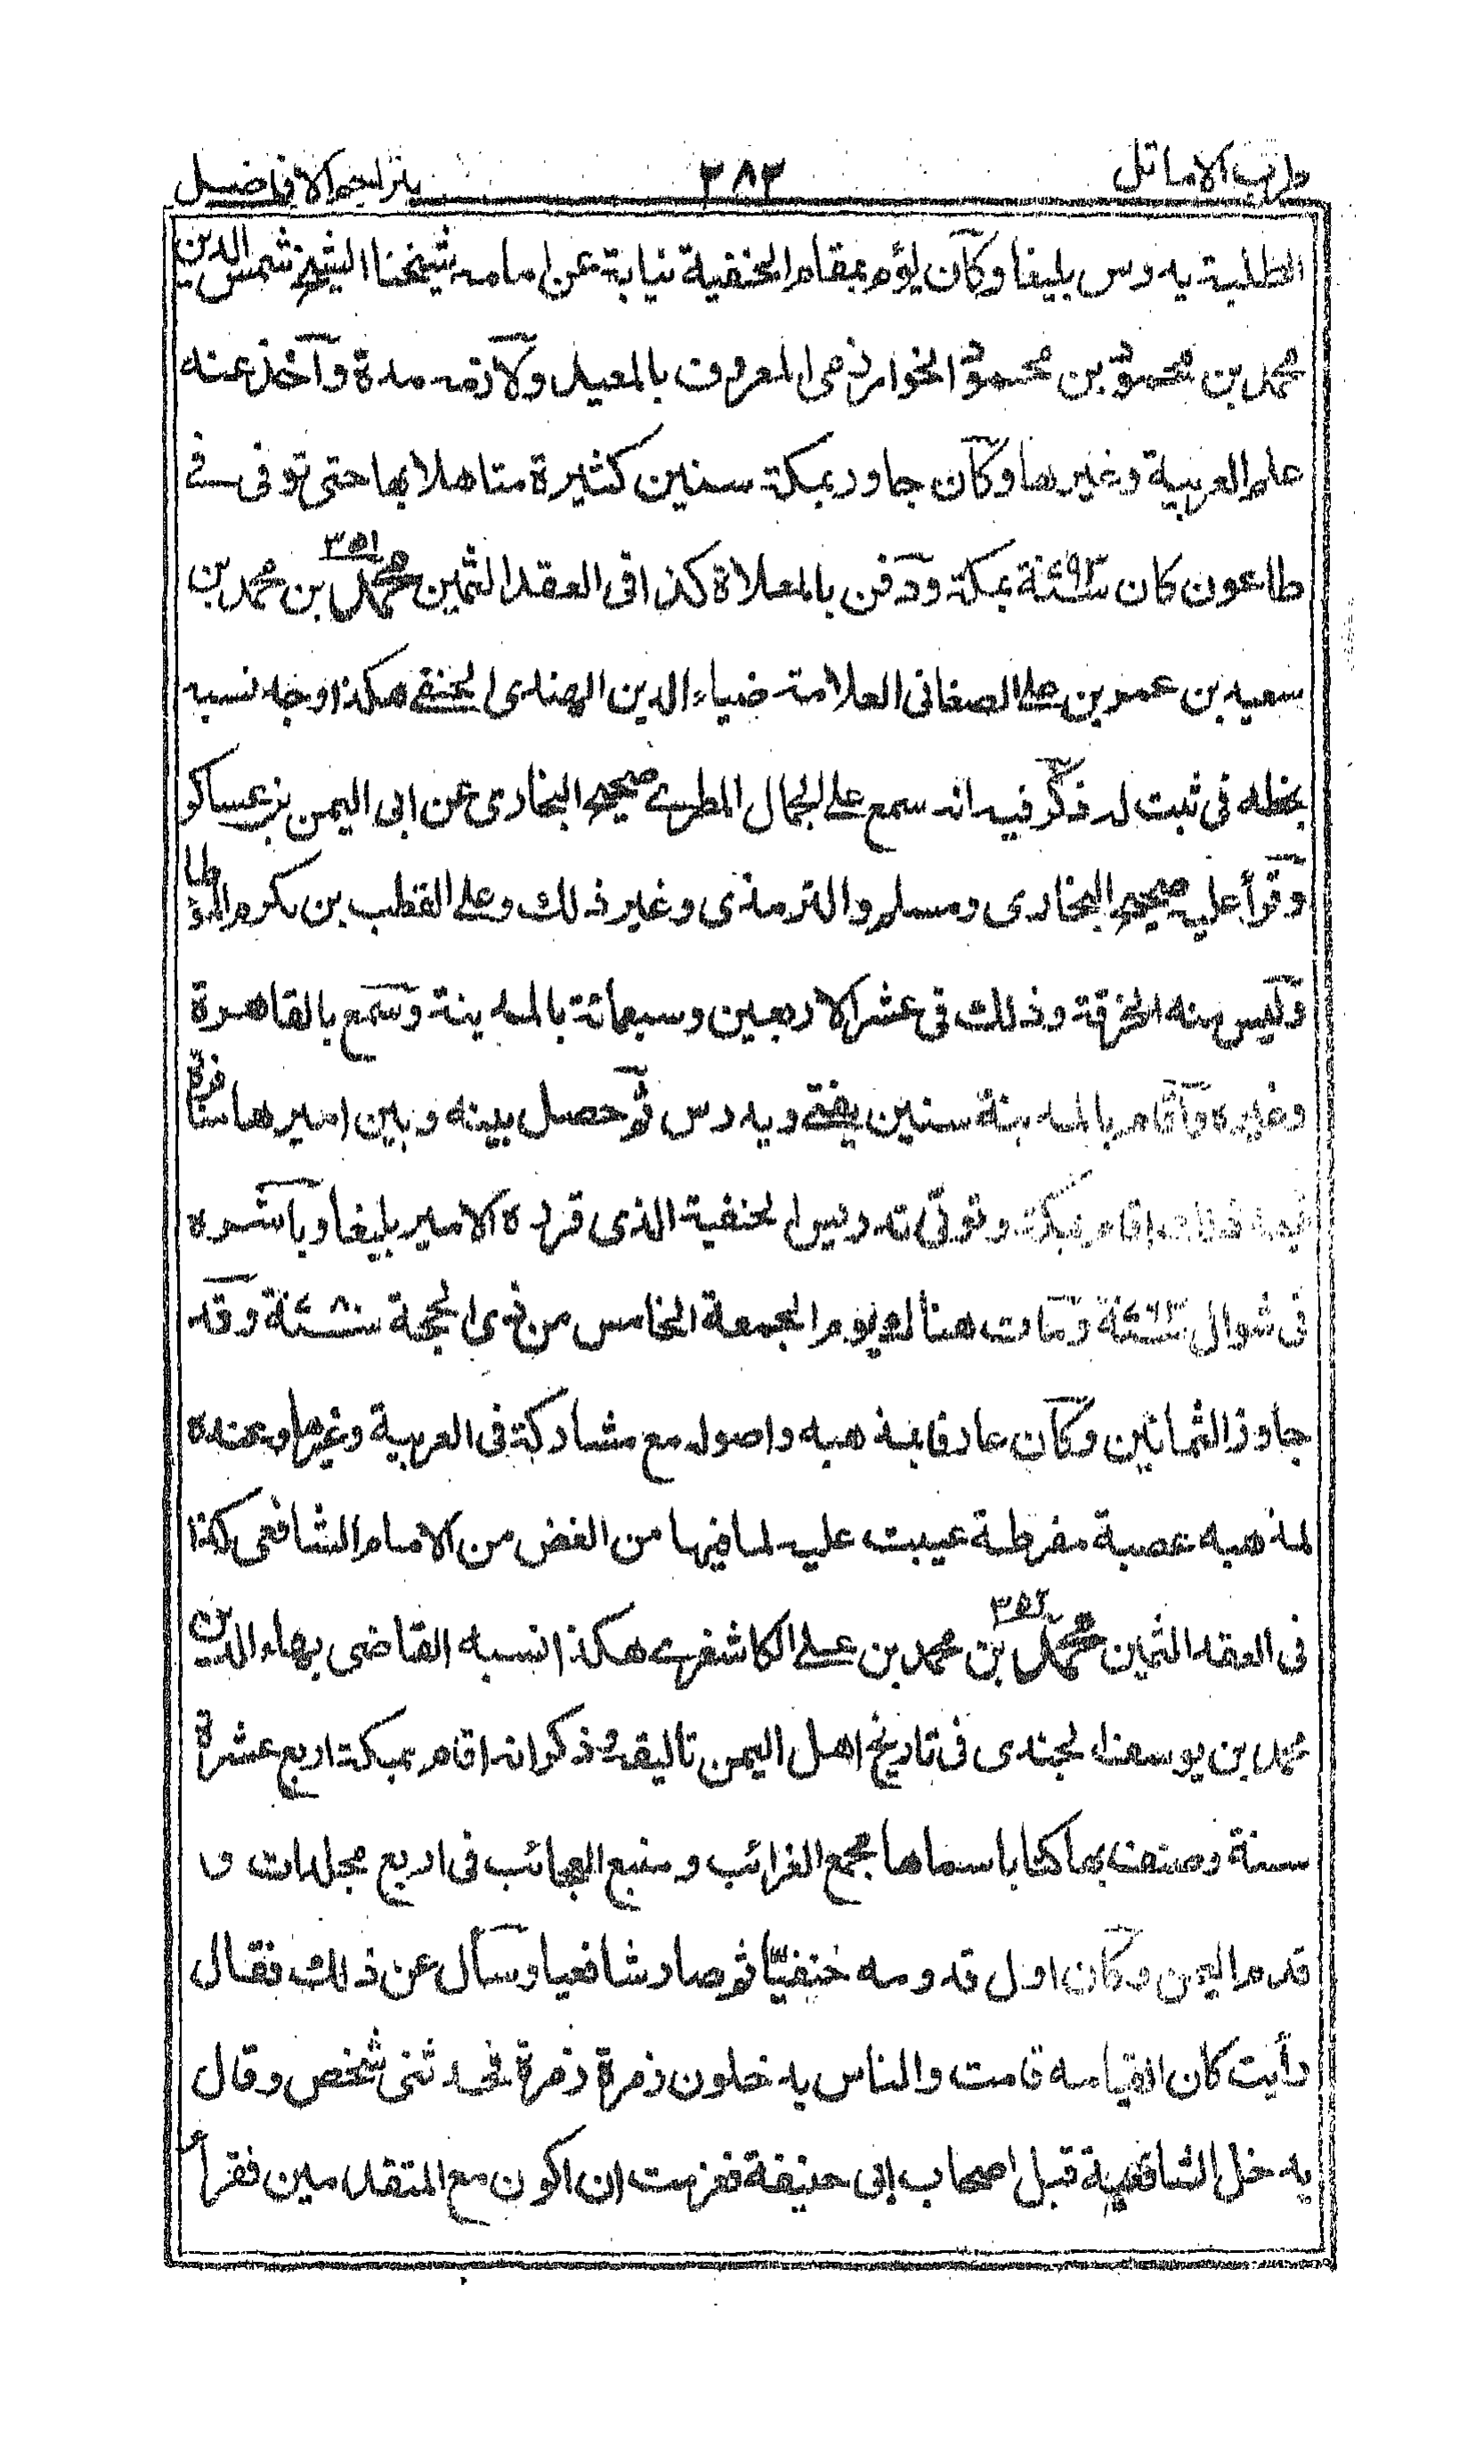 طرب الاماثل ٣٨٣ بتراجم الافاضل
الطلبة يدرس بليغا وكان يؤم بمقام الحنفية نيابة عن امامه شيخنا الشيخ شمس الدين
محمد بن محمود بن محمود الخوارزمى المعروف بالمعيد ولازمه مدة وآخذ عنه
علم العربية وغيرها وكان جاور بمكة سنين كثيرة متاهلا بها حتى توفى فے
طاعون كان سنة ٧٩٣ بمكة ودفن بالمعلاة كذا فى العقد الثمين ٣٥١ محمد بن محمد بن
سعيد بن عمر بن على الصغانى العلامة ضياء الدين الهندى الحنفے هكذا وجد نسبه
بخطه فى ثبت له ذكر فيه انه سمع على الجمال المطرے صحيح البخارى عن ابى اليمن بن عساكر
وقرأ عليه صحيح البخارى ومسلم والترمذى وغير ذلك وعلى القطب بن مكرم المؤطا
ولبس منه الخرقة وذلك فى عشر الاربعين وسبعمائة بالمدينة وسمع بالقاهرة
وغيره وآقام بالمدينة سنين يفتے ويدرس ثم حصل بينه وبين اميرها منافرة
اقام بمكة وتولى تدريس الحنفية الذى قرره الامير يلبغا وباشره
فى شوال سنة ٧٦٣ ومات هنالك يوم الجمعة الخامس من ذى الحجة سنة ٧٨٠ وقد
جاوز الثمانين وكان عارفا بمذهبه واصوله مع مشاركة فى العربية وغيرها وعنده
لمذهبه عصبة مفرطة عيبت عليه لما فيها من الغض من الامام الشافعى كذا
فى العقد الثمين ٣٥٢ محمد بن محمد بن على الكاشغرے هكذا نسبه القاضى بهاء الدين
محمد بن يوسف الجندى فى تاريخ اهل اليمن تاليفه وذكر انه اقام بمكة اربع عشرة
سنة وصنف بها كتابا سماها مجمع الغرائب ومنبع العجائب فى اربع مجلدات و
قدم اليمن وكان اول قدومه حنفيّا ثم صار شافعيا وسآل عن ذلك فقال
رأيت كان القيامه قامت والناس يدخلون زمرة زمرة شخص وقال
يدخل الشافعية قبل اصحاب ابى حنيفة ان اكون مع المتقدمين فقرأ